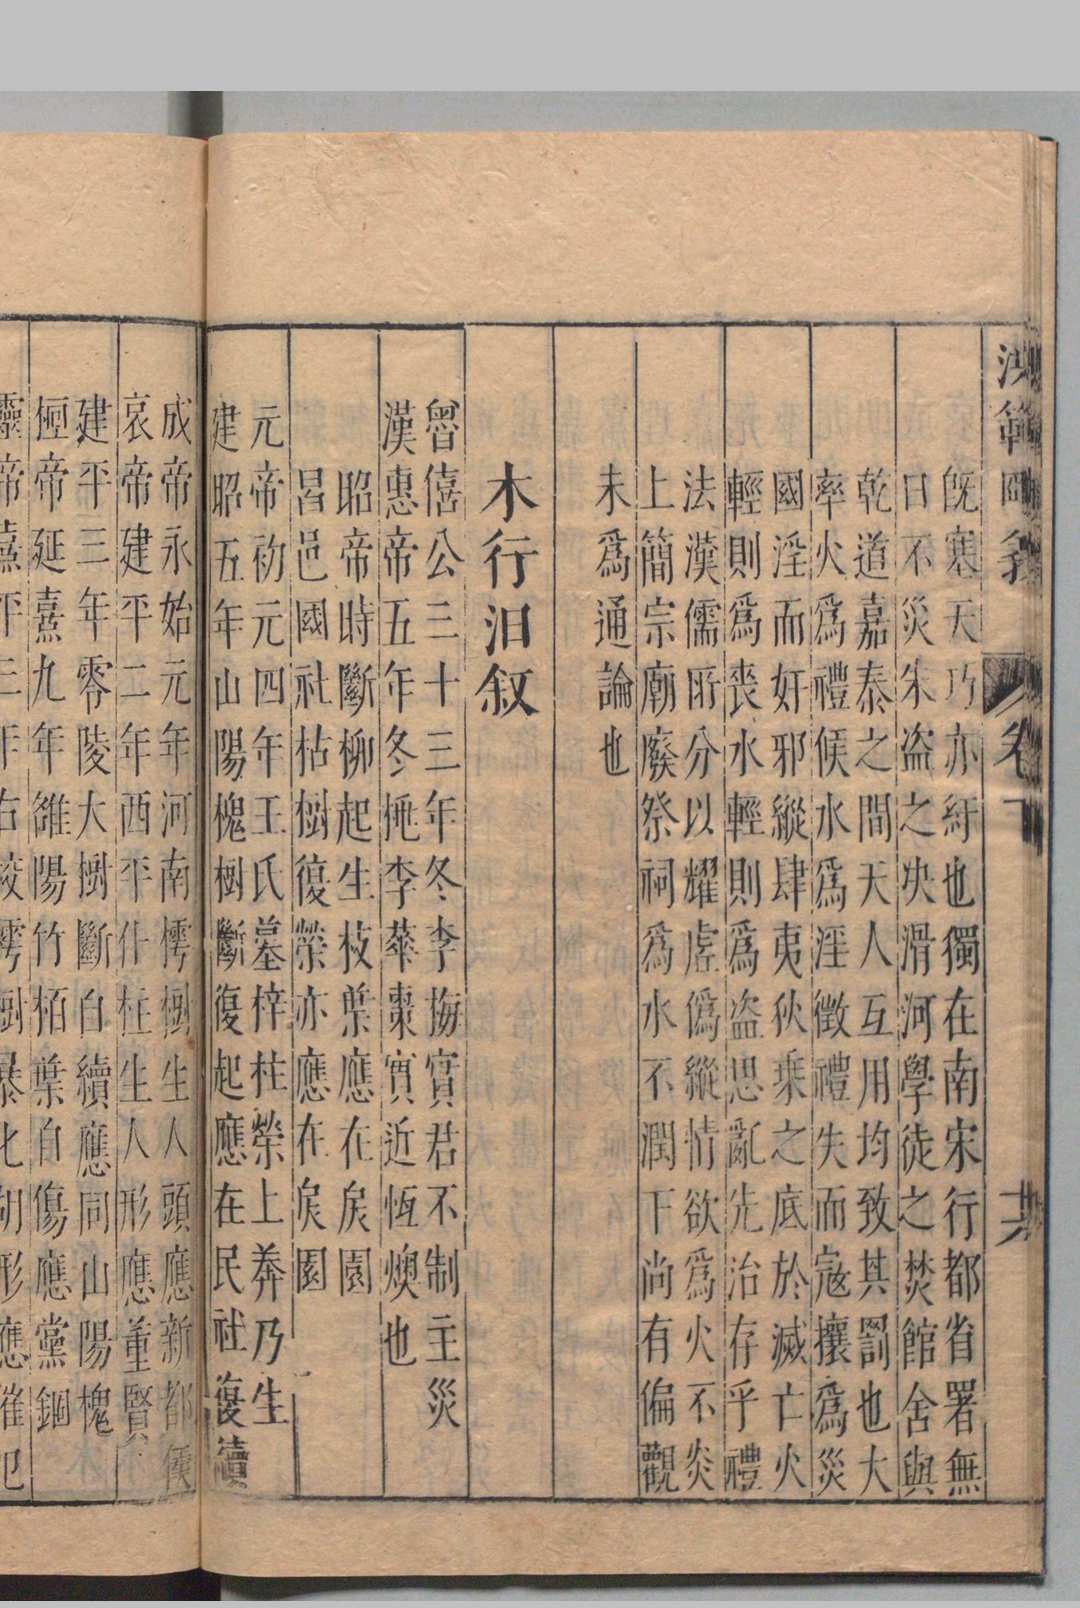 洪範圖說 卷下 共
既寒天巧亦紆也獨在南宋行都省署無
日不災朱盜之央滑河學徒之焚館舍與
乾道嘉泰之間天人互用均致其罰也大
率火爲禮候水爲淫徵禮失而寇攘爲災
國淫而奸邪縱肆夷狄乗之底於滅亡火
輕則爲喪水輕則爲盜思亂先治存乎禮
法漢儒所分以耀虛僞縱情欲爲火不炎
上簡宗廟廢祭祠爲水不潤下尚有偏觀
未爲通論也
木行汨叙
魯僖公三十三年冬李梅實君不制主災
漢惠帝五年冬桃李華棗實近恆燠也
昭帝時斷柳起生枝葉應在戾園
昌邑國社枯樹復榮亦應在戾園
元帝初元四年王氏墓梓柱榮上莽乃生
建昭五年山陽槐樹斷復起應在民社復續
成帝永始元年河南樗樹生人頭應新都侯
哀帝建平二年西平什柱生人形應董賢
建平三年零陵大樹斷自續應同山陽槐
桓帝延熹九年雒陽竹栢葉自傷應黨錮
靈帝熹平三年右校樗樹暴化胡形應催汜